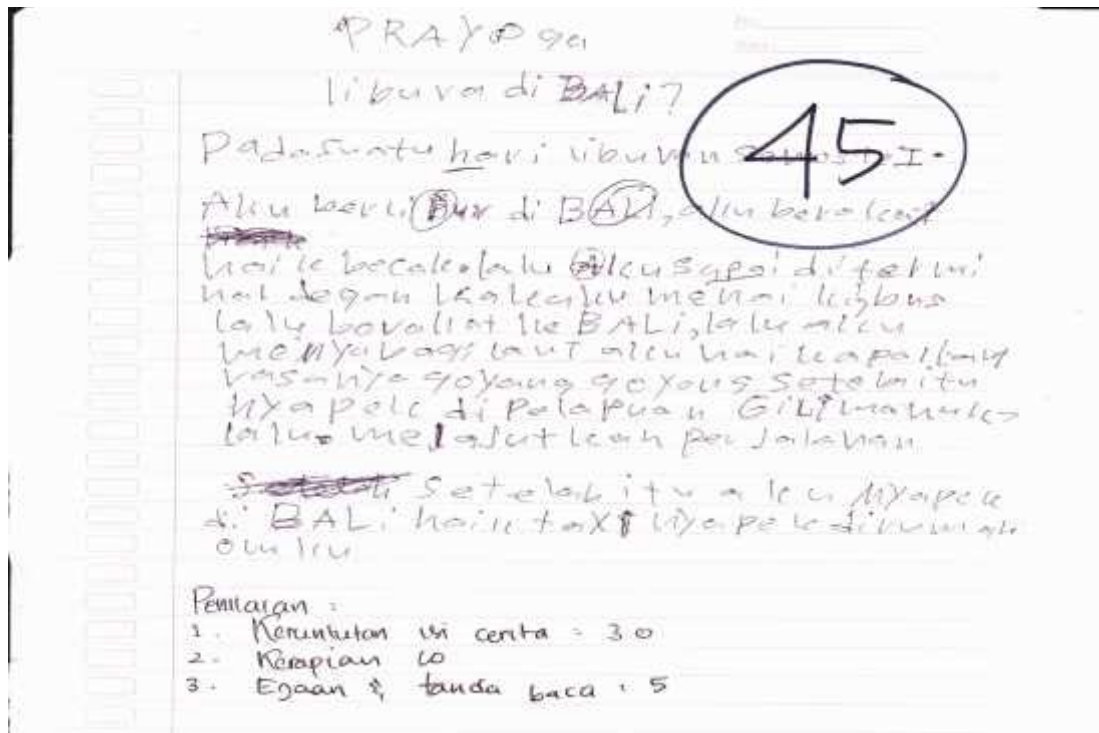 PRAYOga
liburan di BALi?
Padasuatu hari liburan semester I.
Aku berlibur di BALI, aku berakat
naik becak.lalu Akusapai ditermi
nal degan kakakku menai kigbus
lalu beraliat ke BALi, lalu aku
meNyabragi lauT aku naikapallaut
rasanya goyang goyang setelaitu
NYapek di Pelapuan GiLimanuk
lalu melajutkan perjalanan
Setelah itu aku NYapek
di BALi naik taxi NYapek dirumah
omku
Penilaian :
1. Keruntutan isi cerita = 30
2. Kerapian 10
3. Ejaan & tanda baca : 5
45